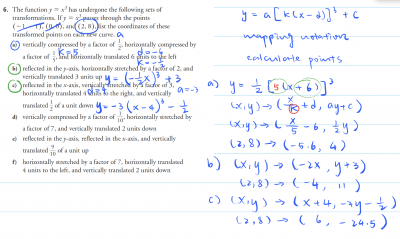 6. The function y = x³ has undergone the following sets of
transformations. If y = x³ passes through the points
(−1, −1), (0, 0), and (2, 8), list the coordinates of these
transformed points on each new curve. a
a) vertically compressed by a factor of 1/2, horizontally compressed
by a factor of 1/5, and horizontally translated 6 units to the left
k=5
d=-6
b) reflected in the y-axis, horizontally stretched by a factor of 2, and
vertically translated 3 units up y = (-1/2 x)³ + 3
c) reflected in the x-axis, vertically stretched by a factor of 3, a=-3
horizontally translated 4 units to the right, and vertically
translated 1/2 of a unit down y = -3(x-4)³ - 1/2
d) vertically compressed by a factor of 1/10, horizontally compressed
by a factor of 7, and vertically translated 2 units down
e) reflected in the y-axis, reflected in the x-axis, and vertically
translated 9/10 of a unit up
f) horizontally stretched by a factor of 7, horizontally translated
4 units to the left, and vertically translated 2 units down
y = a[k(x-d)]³ + c
mapping notation
calculate points
a) y = 1/2 [5(x+6)]³
(x,y) → (x/k + d, ay+c)
(x,y) → (x/5 - 6, 1/2 y)
(2,8) → (-5.6, 4)
b) (x,y) → (-2x, y+3)
(2,8) → (-4, 11)
c) (x,y) → (x+4, -3y - 1/2)
(2,8) → (6, -24.5)